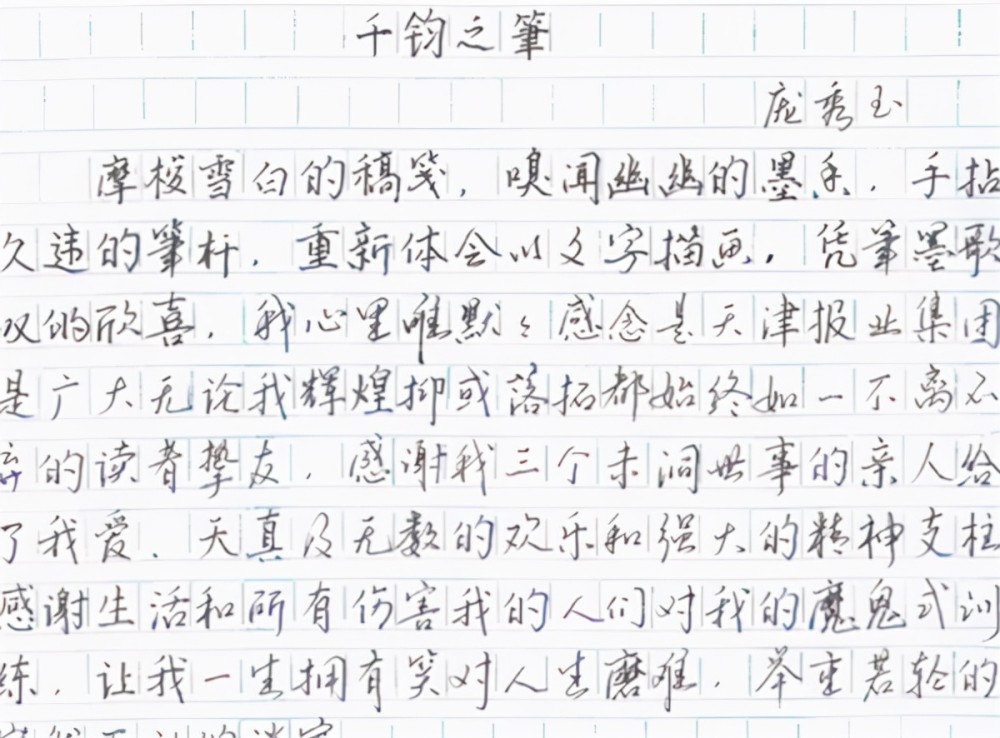 千钧之筆
庞秀玉
摩梭雪白的稿笺，嗅闻幽幽的墨香，手拈
久违的筆杆，重新体会以文字描画，凭筆墨歌
叹的欣喜，我心里唯默々感念是天津报业集团
是广大无论我辉煌抑或落拓都始终如一不离不
弃的读者挚友，感谢我三个未谙世事的亲人给
了我爱、天真及无数的欢乐和强大的精神支柱
感谢生活和所有伤害我的人们对我的魔鬼式训
练，让我一生拥有笑对人生磨难，举重若轻的